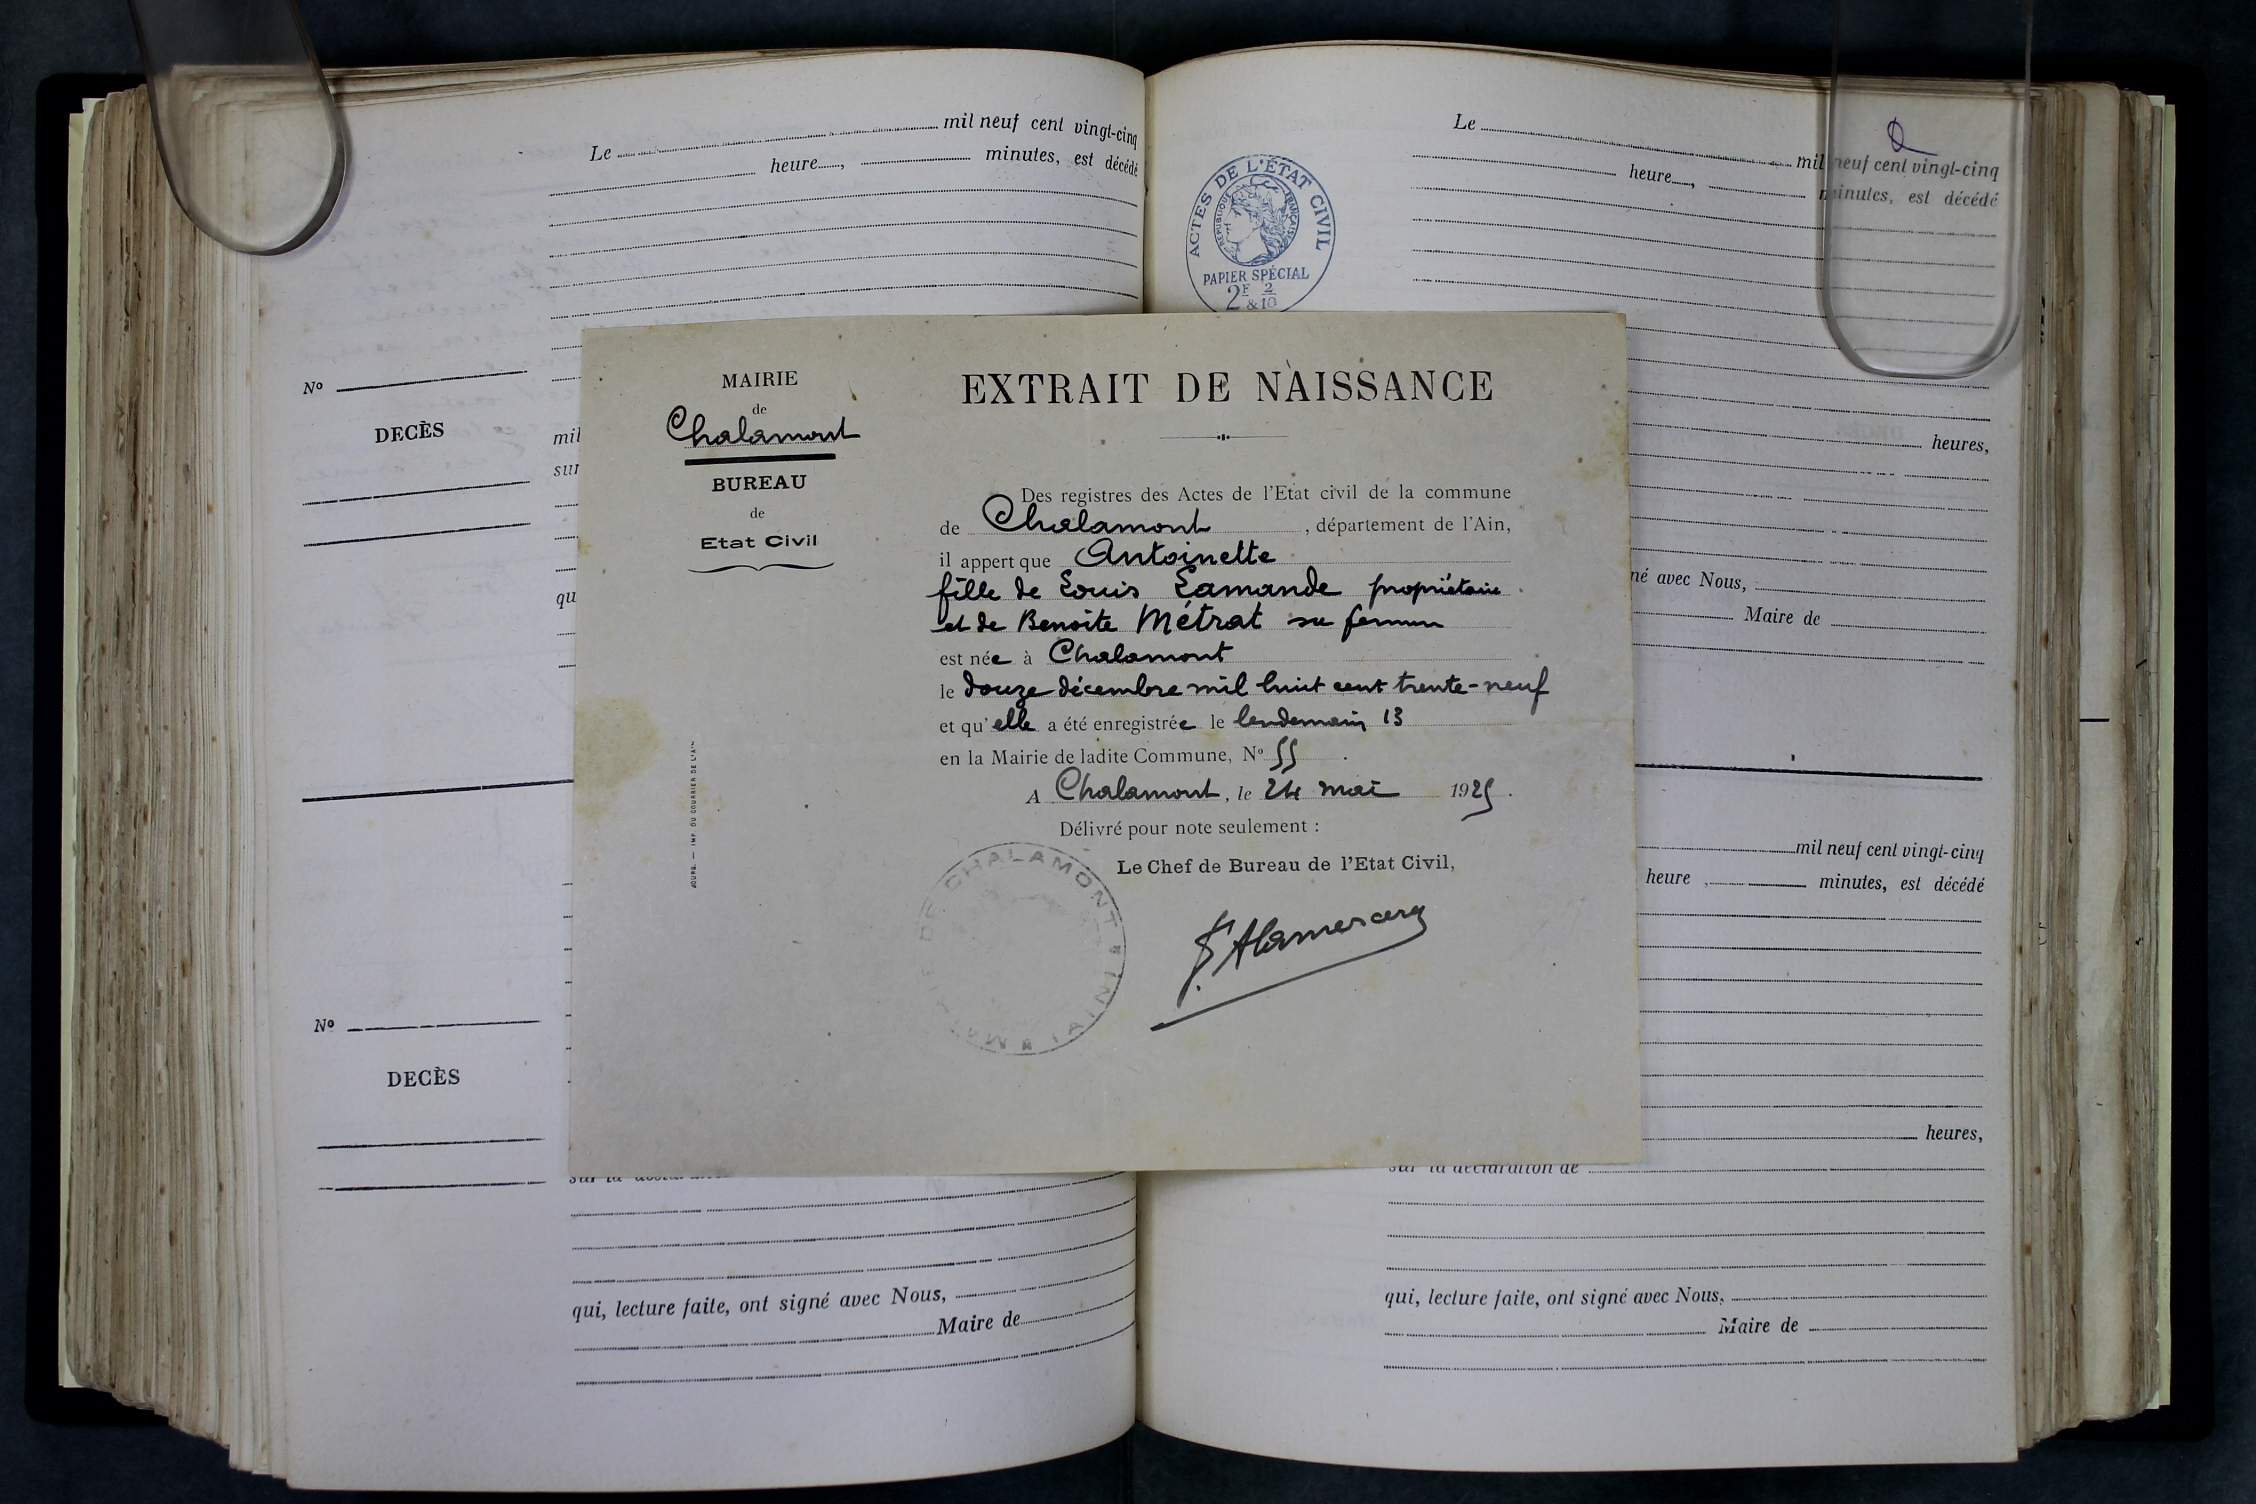 Le mil neuf cent vingt-cinq
heure , minutes, est décédé
Nº
DECÈS
mil
sur
qu
Nº
DECÈS
qui, lecture faite, ont signé avec Nous,
Maire de
Le mil neuf cent vingt-cinq
heure , minutes, est décédé
ACTES DE L'ÉTAT CIVIL
RÉPUBLIQUE FRANÇAISE
PAPIER SPÉCIAL
2F & 2/10
heures,
né avec Nous,
Maire de
mil neuf cent vingt-cinq
heure , minutes, est décédé
heures,
sur la déclaration de
qui, lecture faite, ont signé avec Nous,
Maire de
MAIRIE
de
Chalamont
BUREAU
de
Etat Civil
EXTRAIT DE NAISSANCE
Des registres des Actes de l'Etat civil de la commune
de Chalamont , département de l'Ain,
il appert que Antoinette
fille de Louis Lamande propriétaire
et de Benoite Métrat sa femme
est née à Chalamont
le douze décembre mil huit cent trente-neuf
et qu'elle a été enregistrée le lendemain 13
en la Mairie de ladite Commune, Nº 55 .
A Chalamont, le 24 mai 1925.
Délivré pour note seulement :
Le Chef de Bureau de l'Etat Civil,
MAIRIE DE CHALAMONT (AIN)
BOURG. — IMP. DU COURRIER DE L'AIN